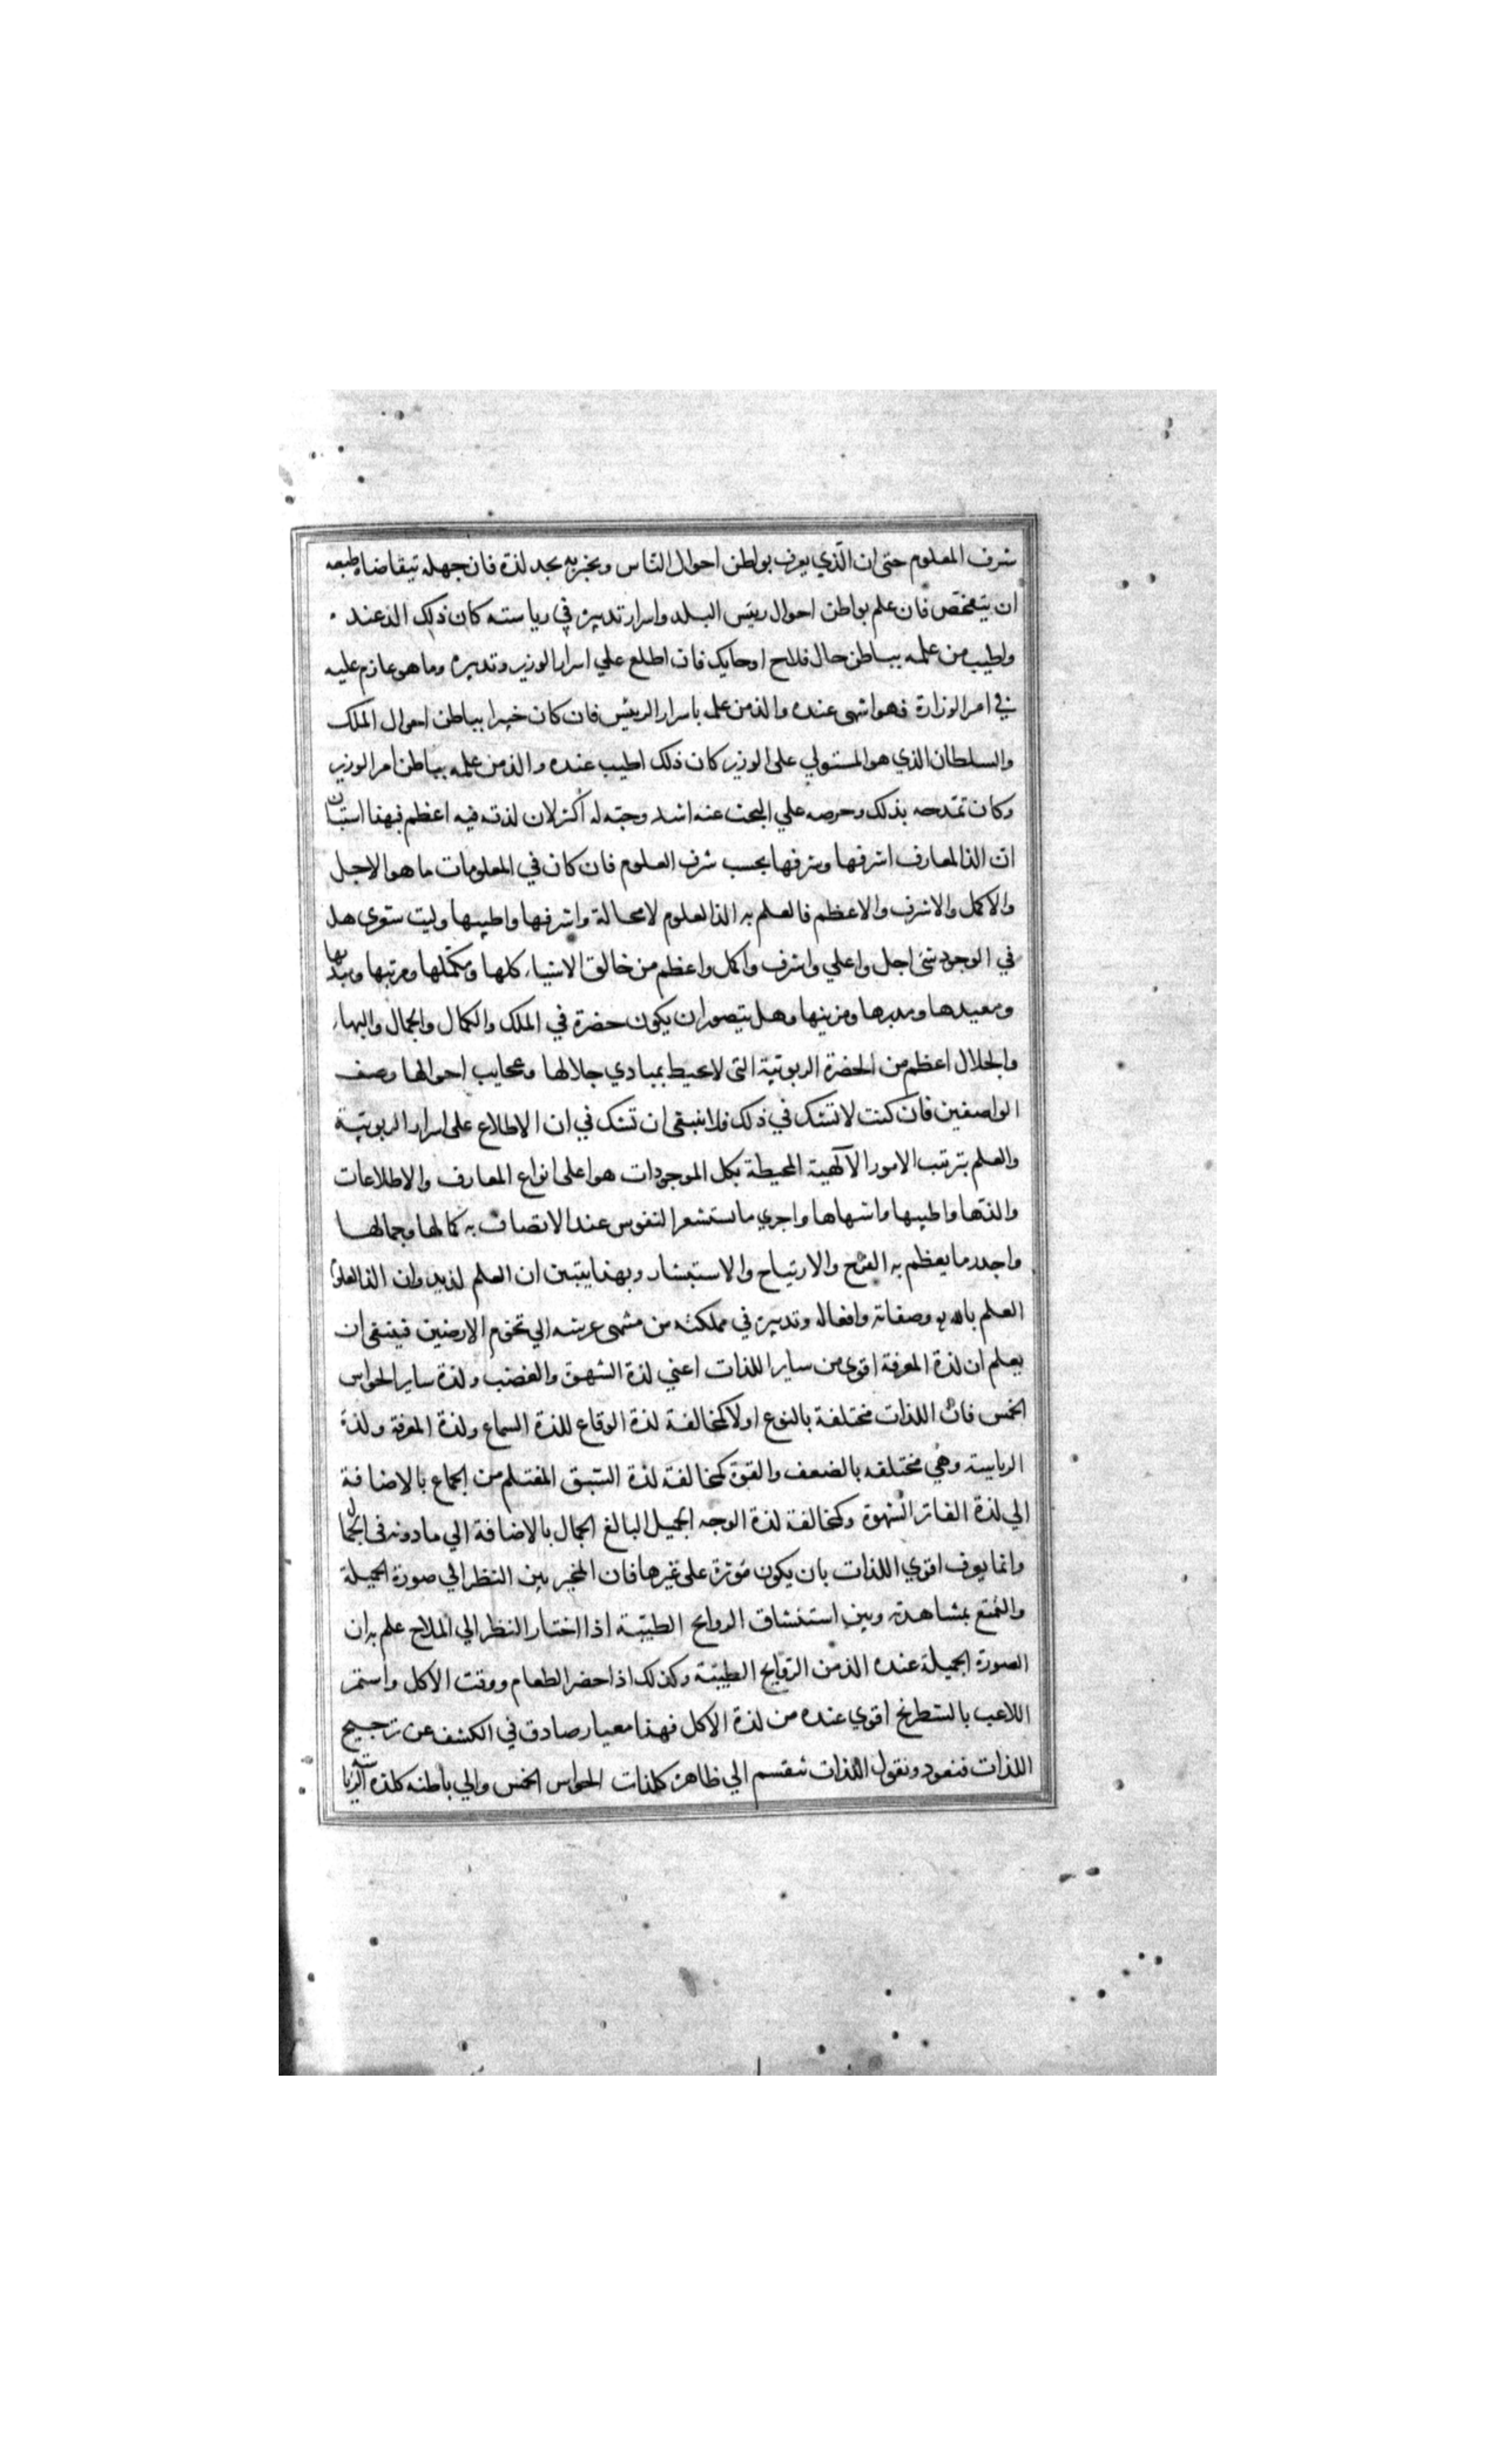 شرف المعلوم حتى ان الّذي يعرف بواطن احوال النّاس ويخبر به يجد لذة فان جهله تيقاضاه طبعه
ان يتفحّص فان علم بواطن احوال ريئس البلد واسرار تدبيره في رياسته كان ذلك الذ عند
واطيب من علمه بباطن حال فلاح او حايك فان اطلع علي اسرار الوزير وتدبيره وما هو عازم عليه
في امر الوزارة فهو اشهى عنده والذ من علمه باسرار الريئس فان كان خبيرا بباطن احوال الملك
والسلطان الذي هو المستولي على الوزير كان ذلك اطيب عنده والذ من علمه بباطن امر الوزير
وكان تمدّحه بذلك وحرصه علي البحث عنه اشد وحبّه له أكثر لان لذته فيه اعظم فبهذا استبان
ان الذ المعارف اشرفها وشرفها بحسب شرف العلوم فان كان في المعلومات ما هو الاجل
والاكمل والاشرف والاعظم فالعلم به الذ العلوم لا محالة واشرفها واطيبها وليت ستعرى هل
في الوجود شئ اجل واعلي واشرف واكمل واعظم من خالق الاشياء كلها ومكمّلها ومرتبها ومبديها
ومعيدها ومدبرها ومزينها وهل يتصور ان يكون حضرة في الملك والكمال والجمال والبهاء
والجلال اعظم من الحضرة الربوبيّة التى لا يحيط بمبادي جلالها وعجايب احوالها وصف
الواصفين فان كنت لا تشك في ذلك فلا ينبغى ان تشك في ان الاطلاع على اسرار الربوبيّة
والعلم بترتب الامور الآلهية المحيطة بكل الموجودات هو اعلى انواع المعارف والاطلاعات
والذها واطيبها واشهاها واجري ما تستشعر النفوس عند الاتصاف به كمالها وجمالها
واجدر ما يعظم به الفرح والارتياح والاستبشار وبهذا يتبين ان العلم لذيذ وان الذ العلوم
العلم بالله وصفاته وافعاله وتدبيره في مملكته من منتهى عرشه الي تخوم الارضين فينبغى ان
يعلم ان لذة المعرفة اقوى من ساير اللذات اعني لذة الشهوة والغضب ولذة ساير الحواس
الخمس فان اللذات مختلفة بالنوع اولا كمخالفة لذة الوقاع للذة السماع ولذة المعرفة ولذة
الرياسة وهي مختلفه بالضعف والقوة كمخالفة لذة الشبق المغتلم من الجماع بالاضافة
الي لذة الفاتر الشهوة وكمخالفة لذة الوجه الجميل البالغ الجمال بالاضافة الي ما دونه فى الجمال
وانما يعرف اقوي اللذات بان يكون مؤثرة على غيرها فان المخير بين النظر الي صورة الجميلة
والتمتع بمشاهدته وبين استنشاق الروايح الطيّبة اذا اختار النظر الي الملاح علم به ان
الصورة الجميلة عنده الذ من الرّوايح الطيّبة وكذلك اذا حضر الطعام ووقت الاكل واستمر
اللاعب بالشطرنج اقوي عنده من لذة الاكل فهذا معيار صادق في الكشف عن ترجيح
اللذات فنعود ونقول اللذات تنقسم الي ظاهرة كلذات الحواس الخمس والي باطنه كلذة الرياسة